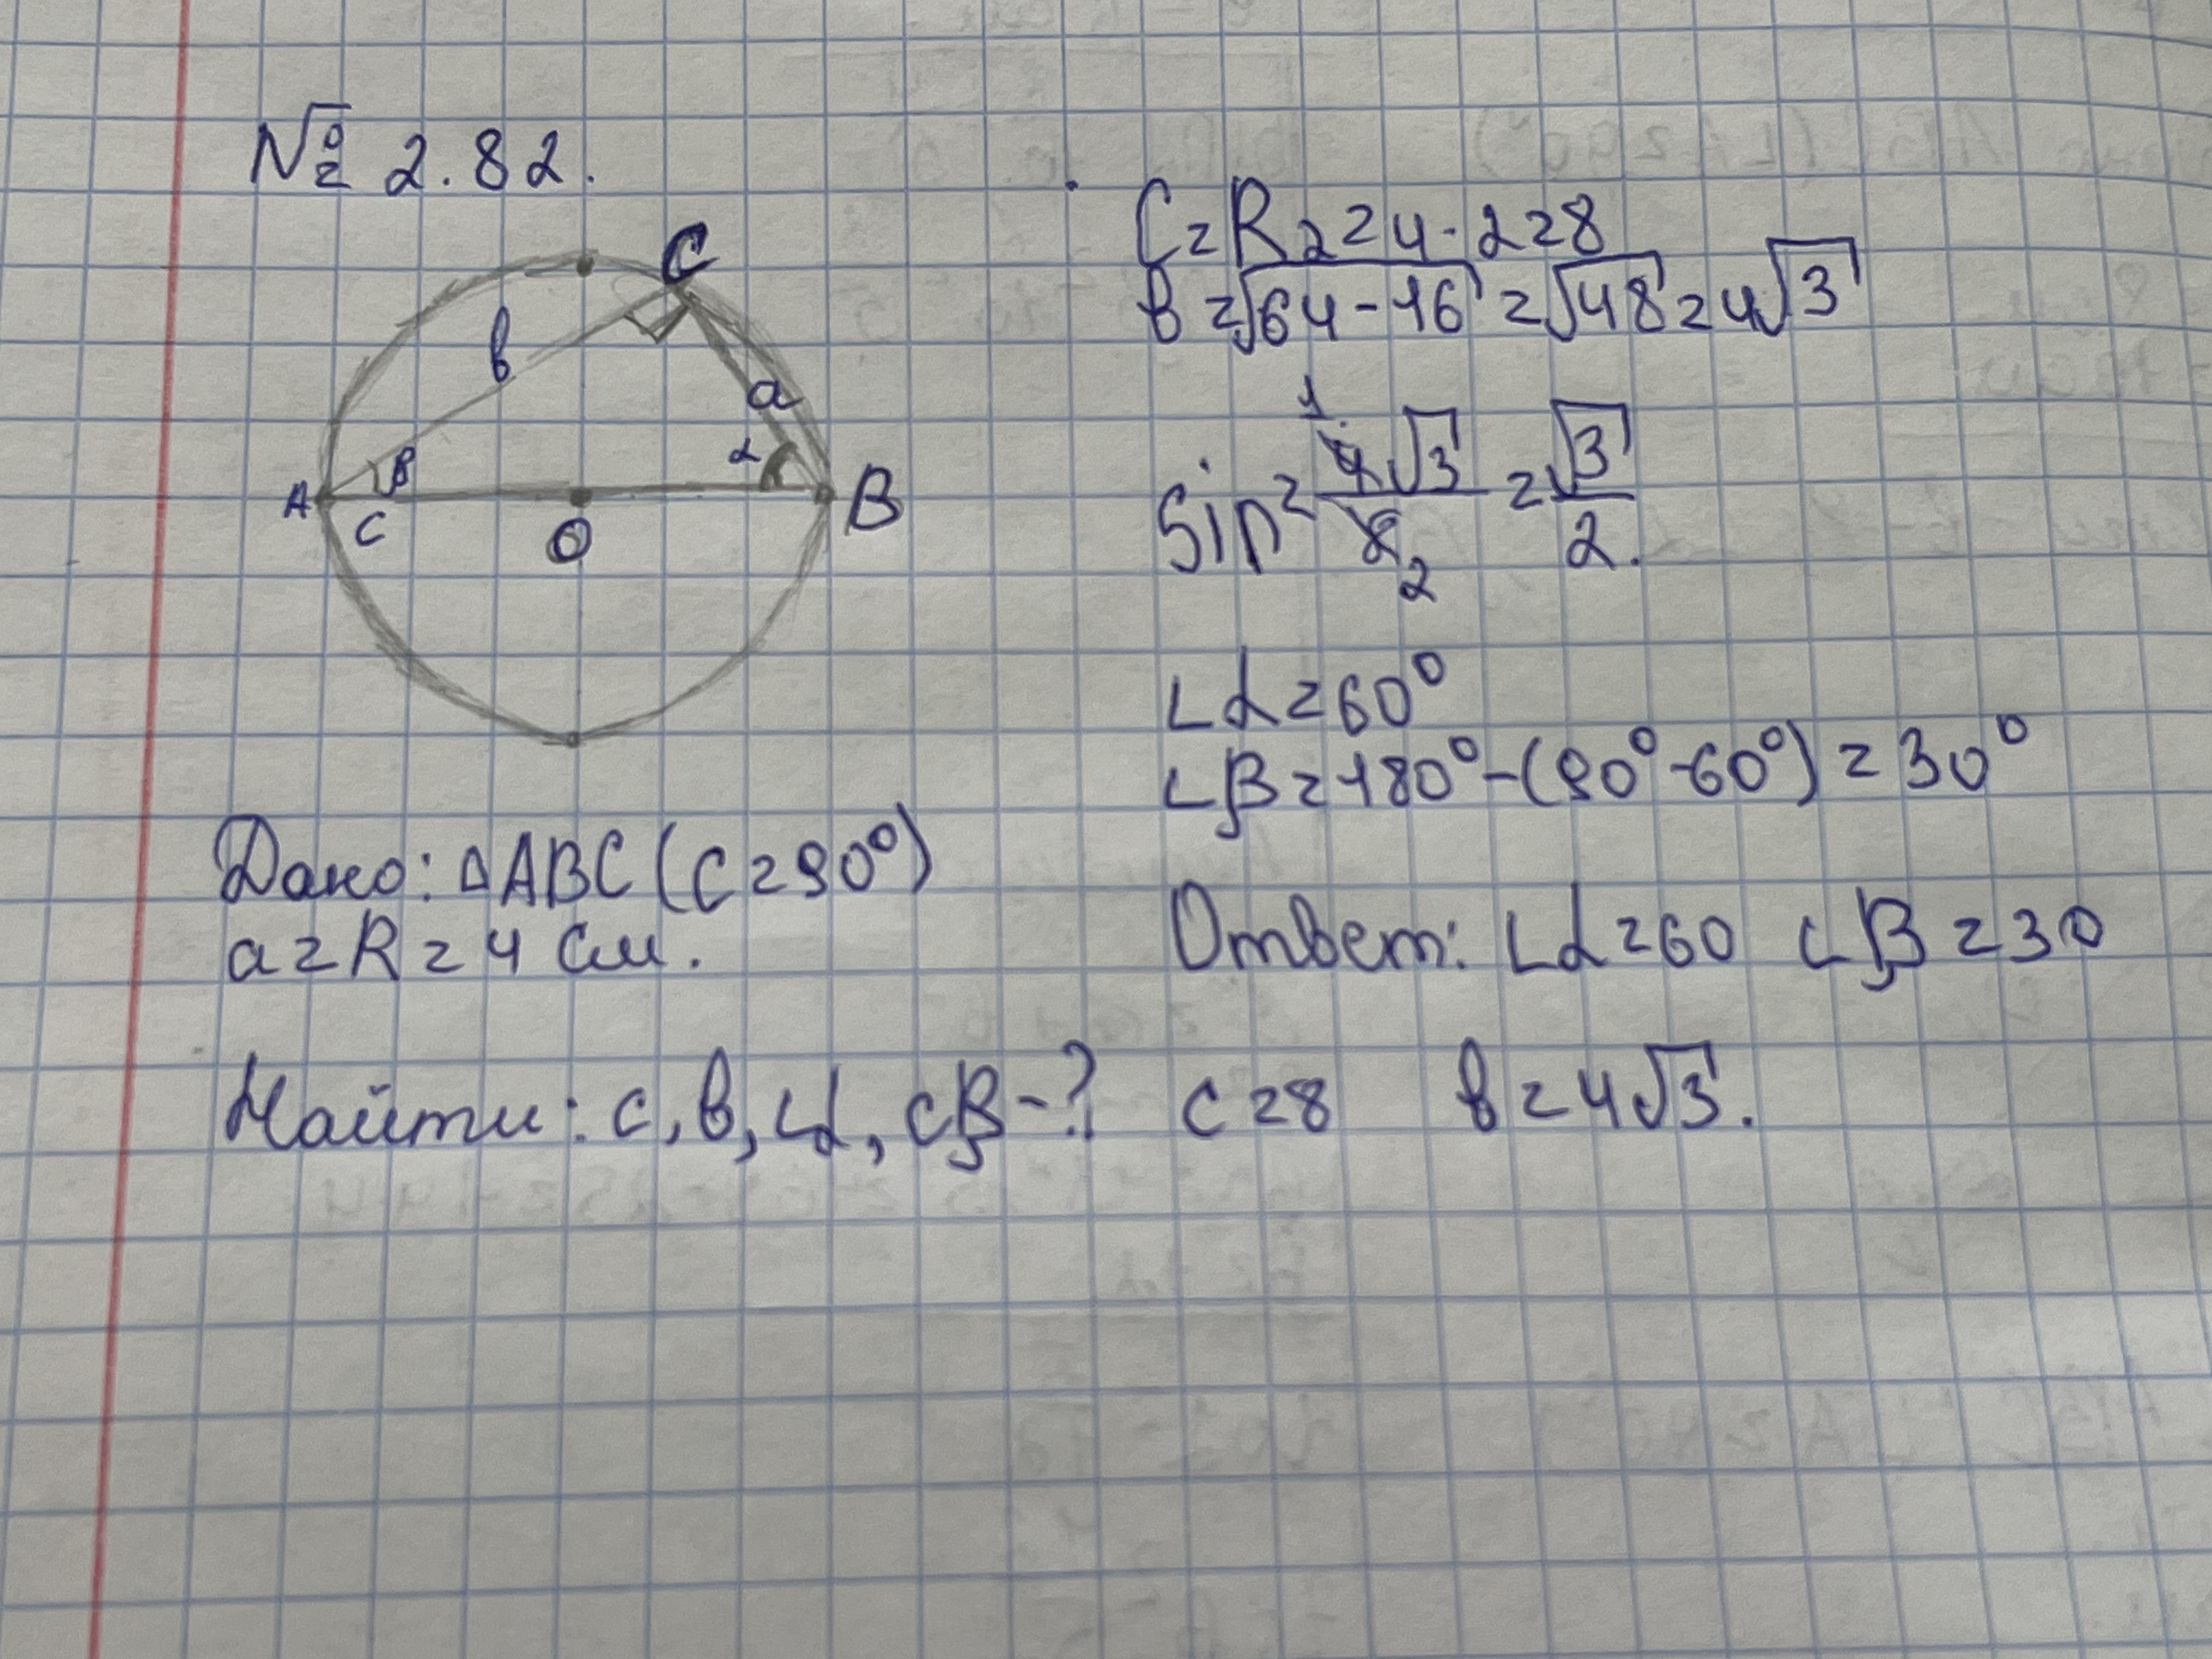 № 2.82.
C
в
a
β
α
A
B
c
O
Дано: ΔABC (C=90°)
a=R=4 см.
Найти: c, в, ∠α, ∠β-?
C=R2=4·2=8
в=√64-16=√48=4√3
1
Sin=4√3/8=√3/2.
2
∠α=60°
∠β=180°-(90°-60°)=30°
Ответ: ∠α=60 ∠β=30
c=8 в=4√3.